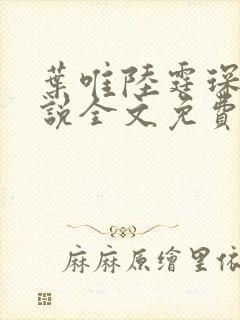 葉唯陸霆琛
說全文免費
麻麻原繪里依